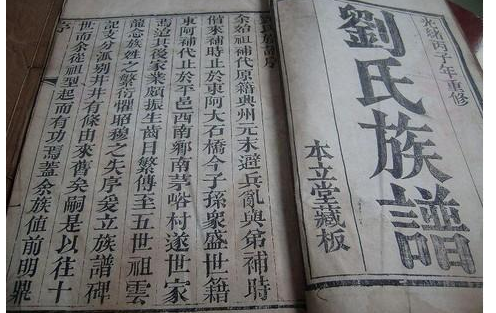 光緒丙子年重修
劉氏族譜
本立堂藏板
劉氏族譜序
余始祖補代原籍興州元末避兵亂與弟補時
偕來補時止於東阿大石橋今子孫衆盛世籍
東阿補代止於平邑西南鄉南茅峪村遂世家
焉迨其後家業頗振生齒日繁傳至五世祖雲
龍念族姓之繁衍懼昭穆之失序爰立族譜碑
記支分派別井井有條由來舊矣嗣是以往十
世而余從祖型起而有功焉蓋余族值前明鼎
序